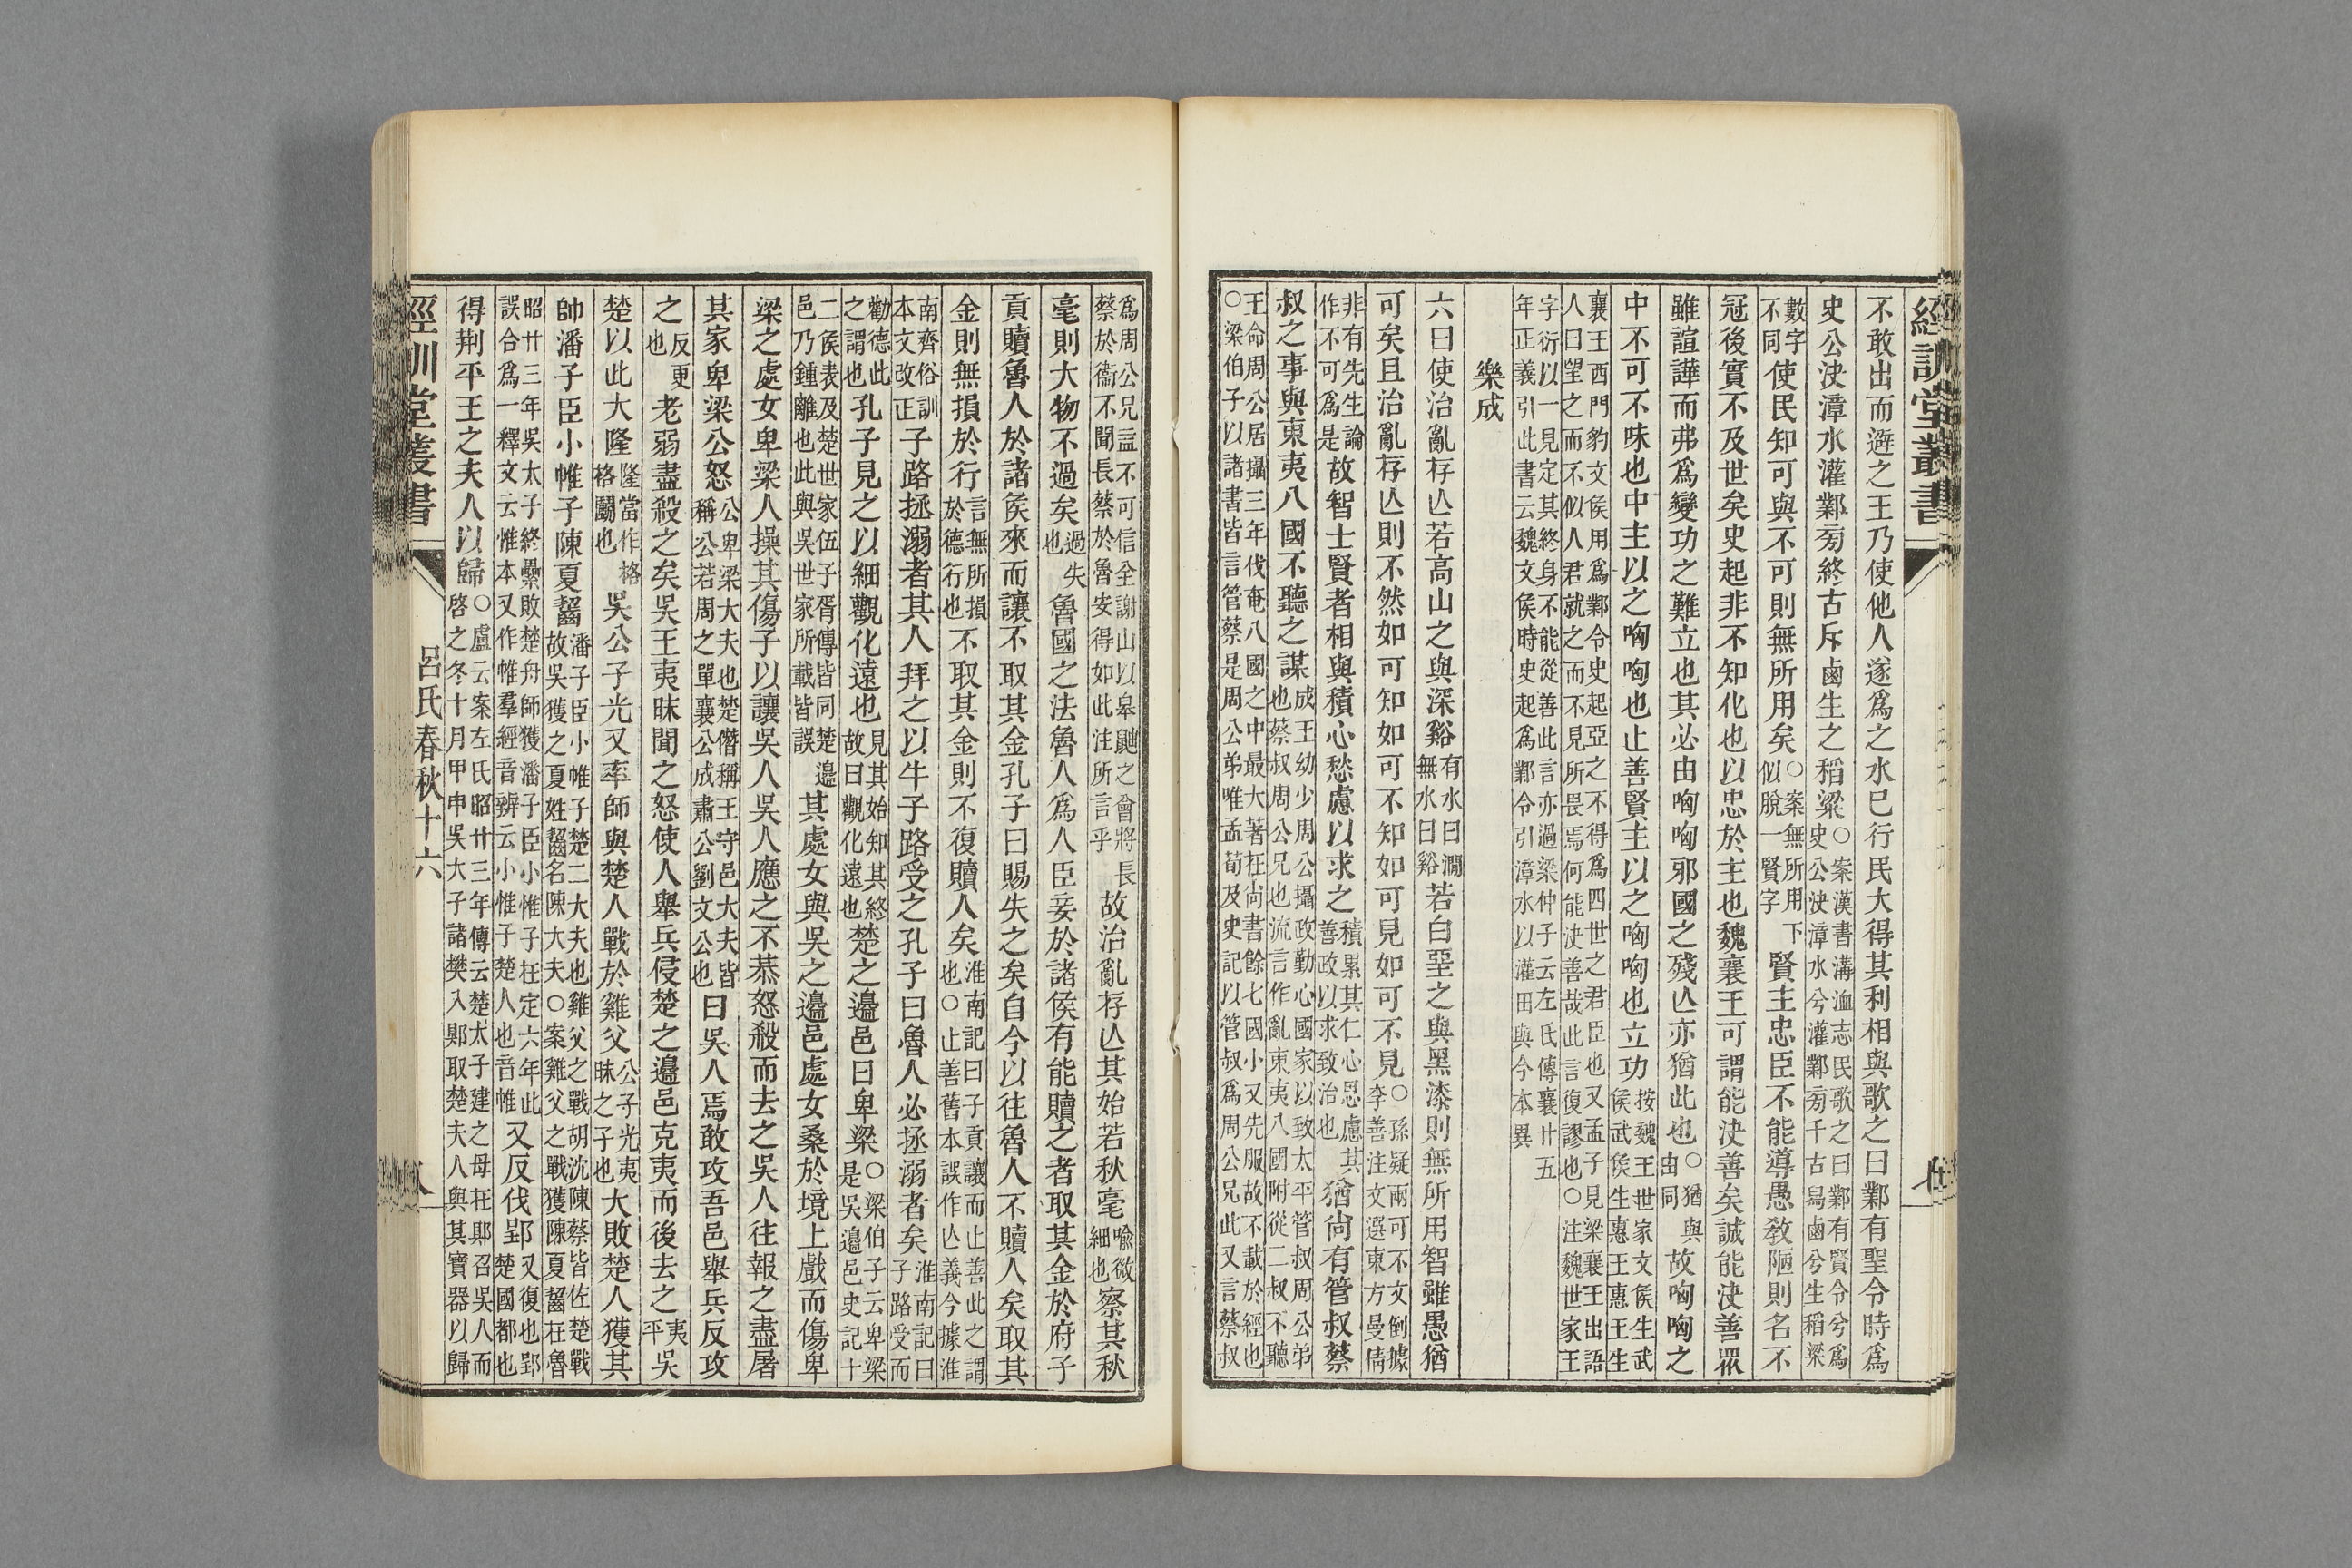 經訓堂叢書
不敢出而避之王乃使他人遂爲之水已行民大得其利相與歌之曰鄴有聖令時爲
史公決漳水灌鄴旁終古斥鹵生之稻粱○案漢書溝洫志民歌之曰鄴有賢令兮爲史公決漳水兮灌鄴旁千古舄鹵兮生稻粱
數字不同使民知可與不可則無所用矣○案無所用下似脫一賢字賢主忠臣不能導愚敎陋則名不
冠後實不及世矣史起非不知化也以忠於主也魏襄王可謂能決善矣誠能決善眾
雖諠譁而弗爲變功之難立也其必由哅哅邪國之殘亾亦猶此也○猶與由同故哅哅之
中不可不味也中主以之哅哅也止善賢主以之哅哅也立功按魏王世家文侯生武侯武侯生惠王惠王生
襄王西門豹文侯用爲鄴令史起亞之不得爲四世之君臣也又孟子見梁襄王出語人曰望之而不似人君就之而不見所畏焉何能決善哉此言復謬也○注魏世家王
字衍以一見定其終身不能從善此言亦過梁仲子云左氏傳襄廿五年正義引此書云魏文侯時史起爲鄴令引漳水以灌田與今本異
樂成
六曰使治亂存亾若高山之與深谿有水曰澗無水曰谿若白堊之與黑漆則無所用智雖愚猶
可矣且治亂存亾則不然如可知如可不知如可見如可不見○孫疑兩可不文倒據李善注文選東方曼倩
非有先生論作不可爲是故智士賢者相與積心愁慮以求之積累其仁心思慮其善政以求致治也猶尙有管叔蔡
叔之事與東夷八國不聽之謀成王幼少周公攝政勤心國家以致太平管叔周公弟也蔡叔周公兄也流言作亂東夷八國附從二叔不聽
王命周公居攝三年伐奄八國之中最大著在尙書餘七國小又先服故不載於經也○梁伯子以諸書皆言管蔡是周公弟唯孟荀及史記以管叔爲周公兄此又言蔡叔
爲周公兄誣不可信全謝山以皋鼬之會將長蔡於衞不聞長蔡於魯安得如此注所言乎故治亂存亾其始若秋毫喩微細也察其秋
毫則大物不過矣過失也魯國之法魯人爲人臣妾於諸侯有能贖之者取其金於府子
貢贖魯人於諸侯來而讓不取其金孔子曰賜失之矣自今以往魯人不贖人矣取其
金則無損於行言無所損於德行也不取其金則不復贖人矣淮南記曰子貢讓而止善此之謂也○止善舊本誤作亾義今據淮
南齊俗訓本文改正子路拯溺者其人拜之以牛子路受之孔子曰魯人必拯溺者矣淮南記曰子路受而
勸德此之謂也孔子見之以細觀化遠也見其始知其終故曰觀化遠也楚之邊邑曰卑梁○梁伯子云卑梁是吳邊邑史記十
二侯表及楚世家伍子胥傳皆同楚邊邑乃鍾離也此與吳世家所載皆誤其處女與吳之邊邑處女桑於境上戲而傷卑
梁之處女卑梁人操其傷子以讓吳人吳人應之不恭怒殺而去之吳人往報之盡屠
其家卑梁公怒公卑梁大夫也楚僭稱王守邑大夫皆稱公若周之單襄公成肅公劉文公也曰吳人焉敢攻吾邑舉兵反攻
之反更也老弱盡殺之矣吳王夷昧聞之怒使人舉兵侵楚之邊邑克夷而後去之夷平吳
楚以此大隆隆當作格格鬭也吳公子光又率師與楚人戰於雞父公子光夷昧之子也大敗楚人獲其
帥潘子臣小帷子陳夏齧潘子臣小帷子楚二大夫也雞父之戰胡沈陳蔡皆佐楚戰故吳獲之夏姓齧名陳大夫○案雞父之戰獲陳夏齧在魯
昭廿三年吳太子終纍敗楚舟師獲潘子臣小惟子在定六年此誤合爲一釋文云惟本又作帷羣經音辨云小惟子楚人也音帷又反伐郢又復也郢楚國都也
得荆平王之夫人以歸○盧云案左氏昭廿三年傳云楚太子建之母在郹召吳人而啓之冬十月甲申吳大子諸樊入郹取楚夫人與其寶器以歸
經訓堂叢書
呂氏春秋十六
八